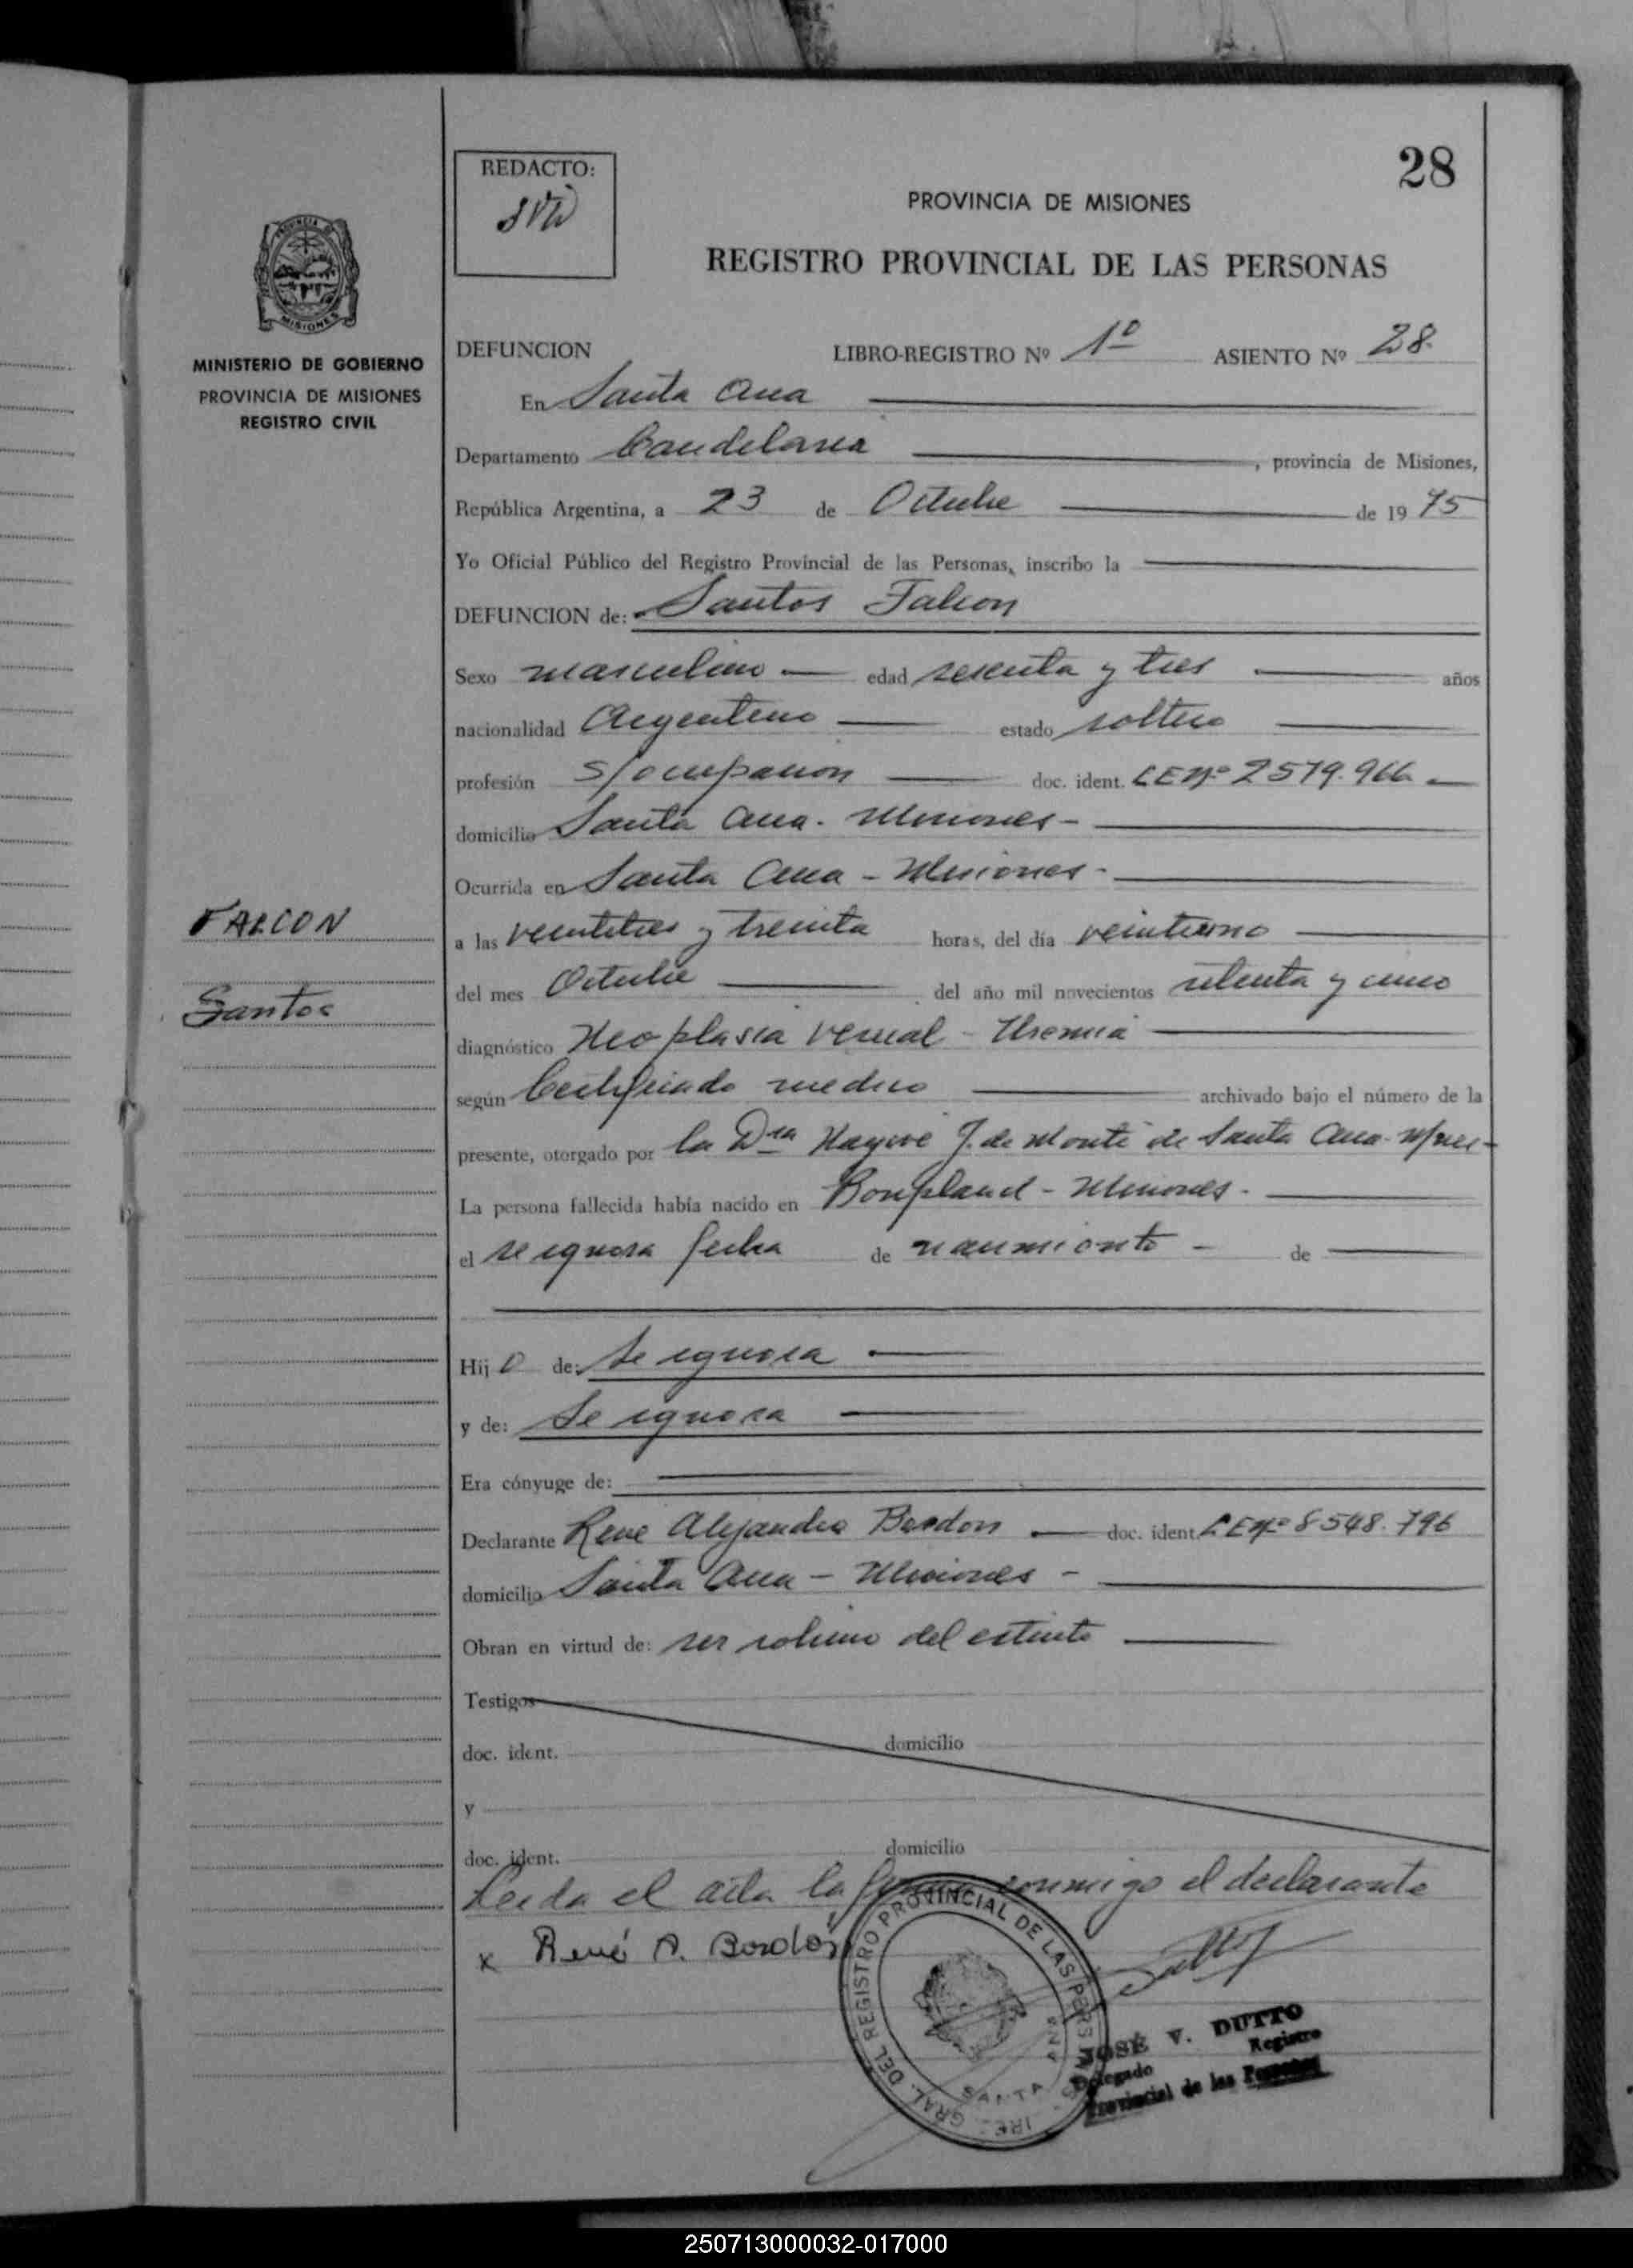 28
REDACTO:
PROVINCIA DE MISIONES
REGISTRO PROVINCIAL DE LAS PERSONAS
MINISTERIO DE GOBIERNO
PROVINCIA DE MISIONES
REGISTRO CIVIL
DEFUNCION LIBRO-REGISTRO Nº 1º ASIENTO Nº 28
En Santa Ana
Departamento Candelaria, provincia de Misiones,
República Argentina, a 23 de Octubre de 1975
Yo Oficial Público del Registro Provincial de las Personas, inscribo la
DEFUNCION de: Santos Falcon
Sexo masculino edad sesenta y tres años
nacionalidad Argentino estado soltero
profesión s/ocupacion doc. ident. LE Nº 2579.966
domicilio Santa Ana - Misiones -
Ocurrida en Santa Ana - Misiones -
FALCON
Santos
a las veintitres y treinta horas, del día veintiuno
del mes Octubre del año mil novecientos setenta y cinco
diagnóstico Neoplasia vesical - Uremia
según Certificado medico archivado bajo el número de la
presente, otorgado por la Dra J. de Monte de Santa Ana - Mnes -
La persona fallecida había nacido en Bonpland - Misiones -
el se ignora fecha de nacimiento - de
Hijo de: Se ignora
y de: Se ignora
Era cónyuge de:
Declarante Rene Alejandro Bordon doc. ident. LE Nº 8548.796
domicilio Santa Ana - Misiones -
Obran en virtud de: ser sobrino del extinto
Testigos
doc. ident. domicilio
y
doc. ident. domicilio
Leida el acta la firma conmigo el declarante
x René A. Bordón
GRAL. DEL REGISTRO PROVINCIAL DE LAS PERS
SANTA ANA
JOSE V. DUTTO
Delegado Registro
Provincial de las Personas
250713000032-017000